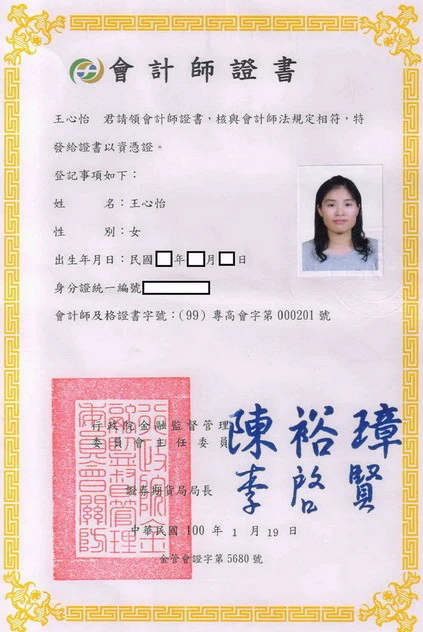 會計師證書
王心怡 君請領會計師證書，核與會計師法規定相符，特
發給證書以資憑證。
登記事項如下：
姓 名：王心怡
性 別：女
出生年月日：民國 年 月 日
身分證統一編號
會計師及格證書字號：(99) 專高會字第 000201 號
行政院金融監督管理
委員會主任委員 陳裕璋
證券期貨局局長 李啓賢
中華民國 100 年 1 月 19 日
金管會證字第 5680 號
行政院金
融監督管理
委員會關防